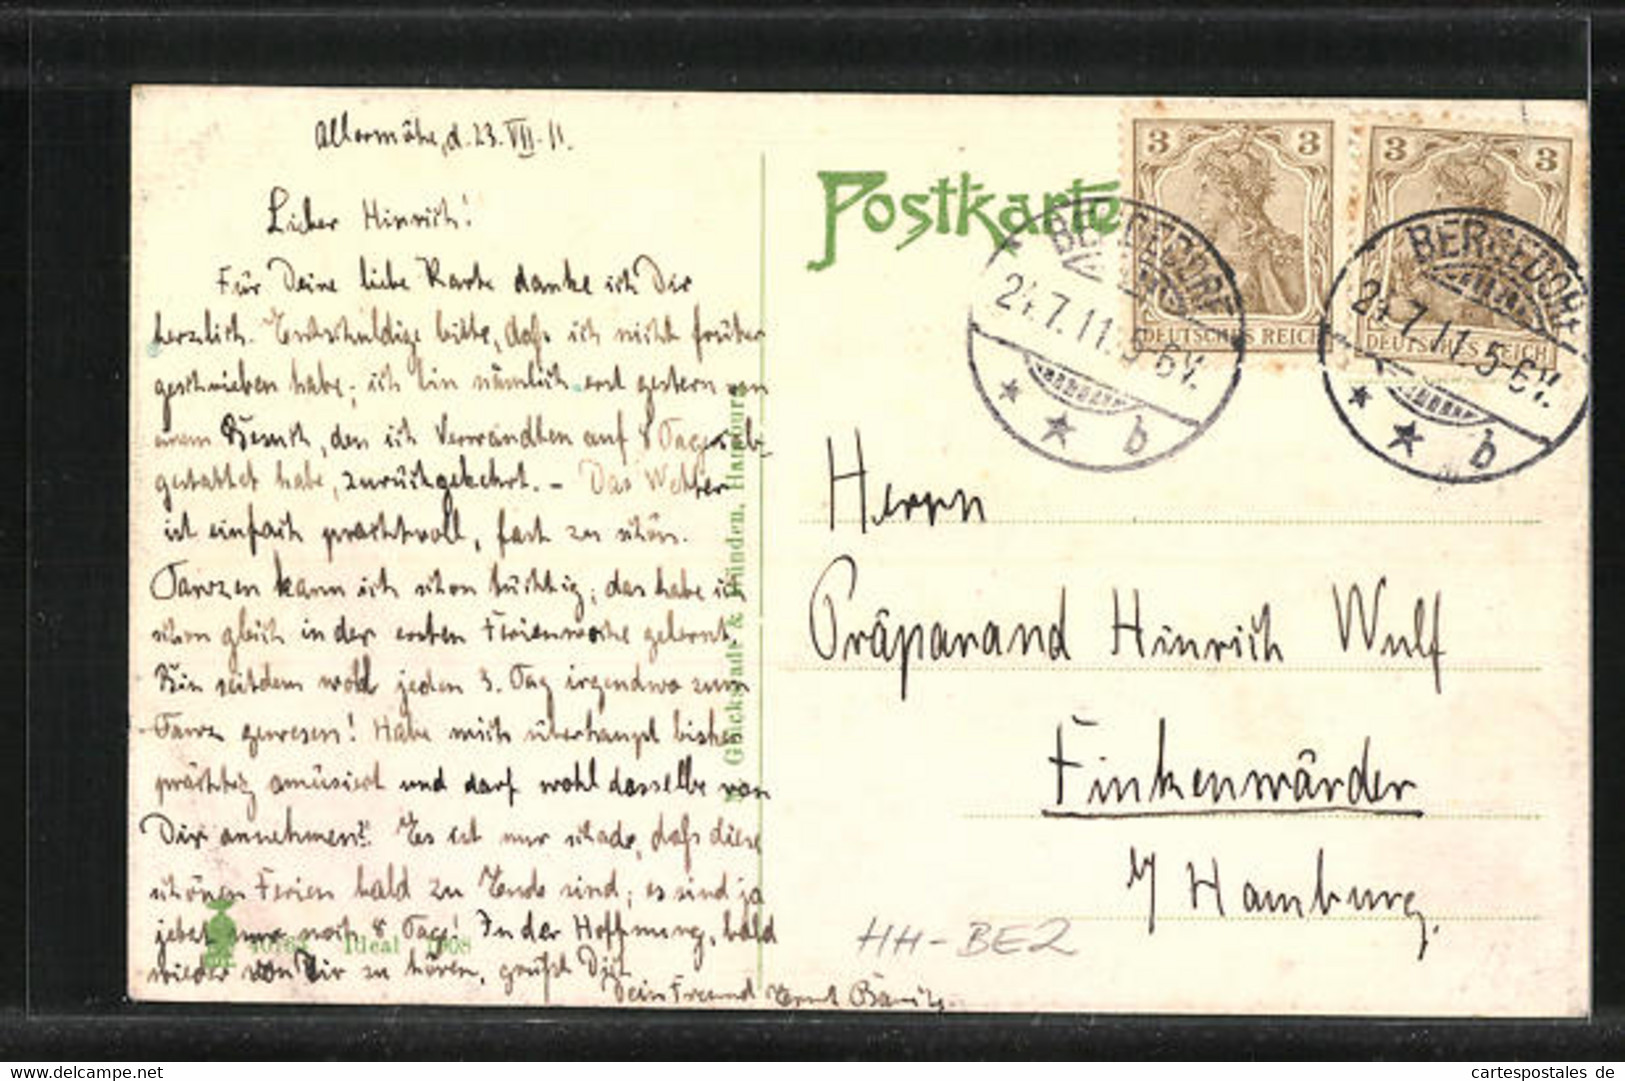 Allermöhe, d. 23. VII. 11.
Lieber Hinrich!
Für Deine liebe Karte danke ich Dir
herzlich. Entschuldige bitte, daß ich nicht früher
geschrieben habe; ich bin nämlich erst gestern von
einem Besuch, den ich Verwandten auf 8 Tage ab-
gestattet habe, zurückgekehrt. – Das Wetter
ist einfach prachtvoll, fast zu schön.
Tanzen kann ich schon tüchtig; das habe ich
schon gleich in der ersten Ferienwoche gelernt.
Bin seitdem wohl jeden 3. Tag irgendwo zum
Tanz gewesen! Habe mich überhaupt bisher
prächtig amüsiert und darf wohl dasselbe von
Dir annehmen? Es ist nur schade, daß diese
schönen Ferien bald zu Ende sind; es sind ja
jetzt nur noch 8 Tage! In der Hoffnung, bald
wieder von Dir zu hören, grüßt Dich
Dein Freund Ernst
Glückstadt & Münden, Hamburg
Ideal 1908
Postkarte
3 3
DEUTSCHES REICH
3 3
DEUTSCHES REICH
BERGEDORF
24.7.11.5-6V.
b
BERGEDORF
24.7.11.5-6V.
b
Herrn
Präparand Hinrich Wulf
Finkenwärder
b/ Hamburg.
HH-BE2
www.cartespostales.de